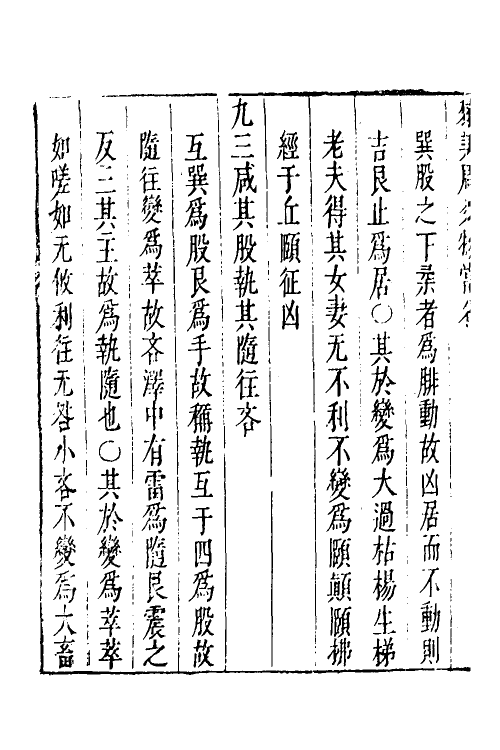 巽股之下桑者為腓動故凶居而不動則
吉艮止為居〇其於變為大過枯楊生梯
老夫得其女妻无不利不變為頤顛頤拂
經于丘頤征凶
九三咸其股執其隨往吝
互巽為股艮為手故稱執互于四為股故
隨往變為萃故吝澤中有雷為隨艮震之
反三其主故為執隨也〇其於變為萃萃
如嗟如无攸利往无咎小吝不變為大畜